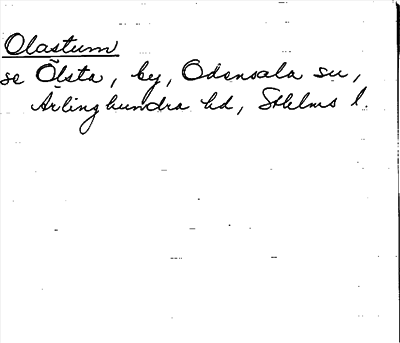 Olastum
se Õlsta, by, Odensala sn,
Ärlinghundra hd, Sthlms l.